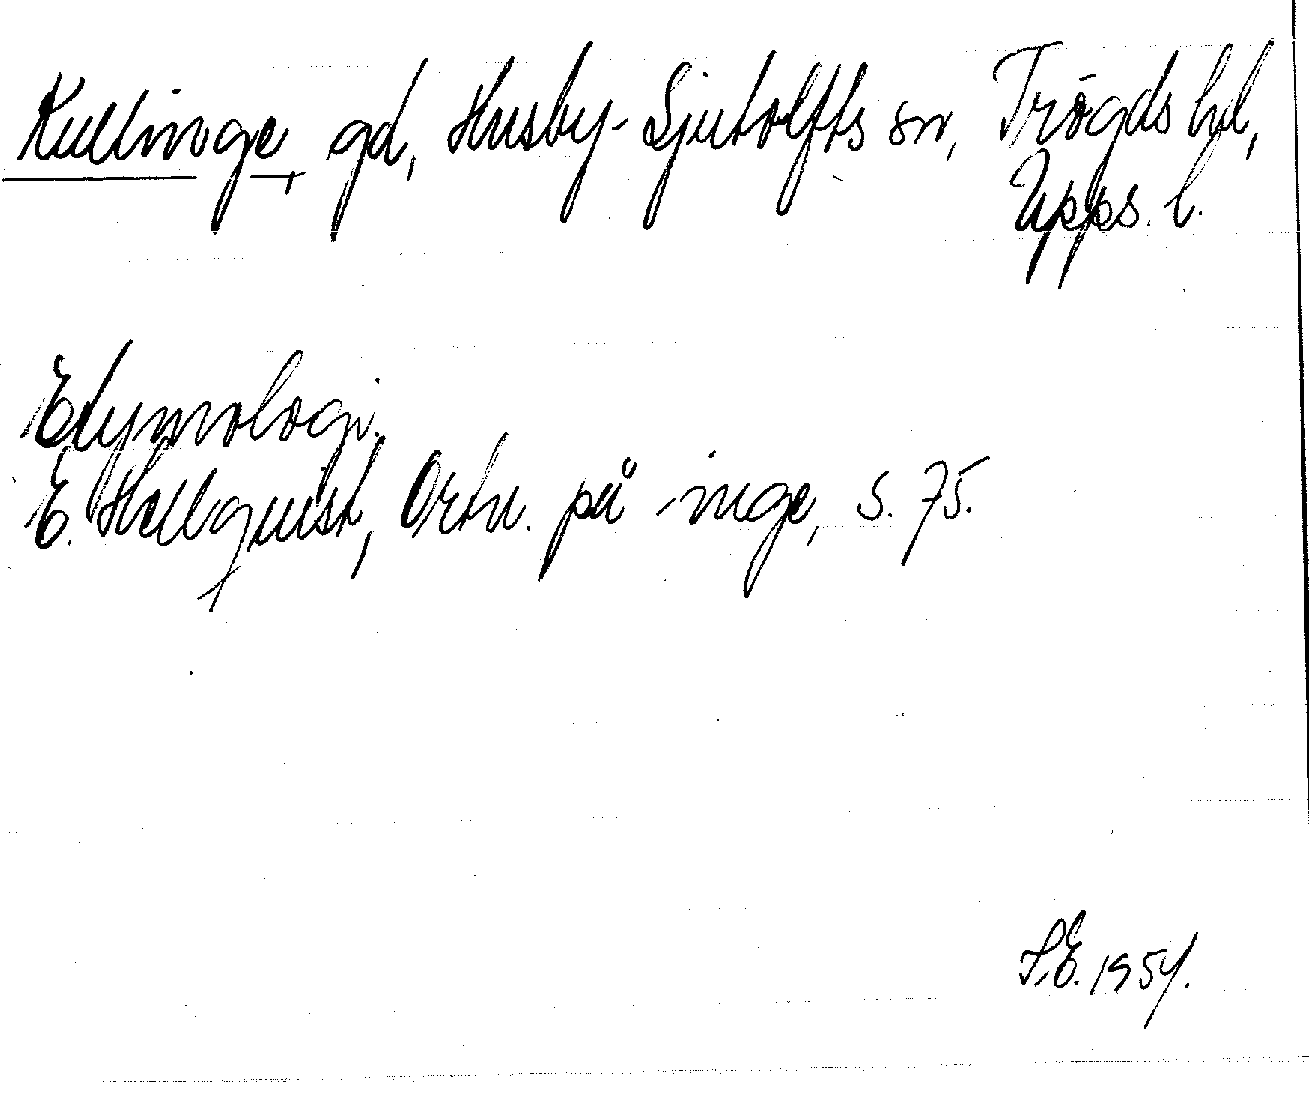 Kullinge, gd, Husby-Sjutolfts sn, Trögds hd,
Upps. l.
Etymologi.
E. Hellquist, Ortn. på -inge, s. 75.
S.E. 1954.